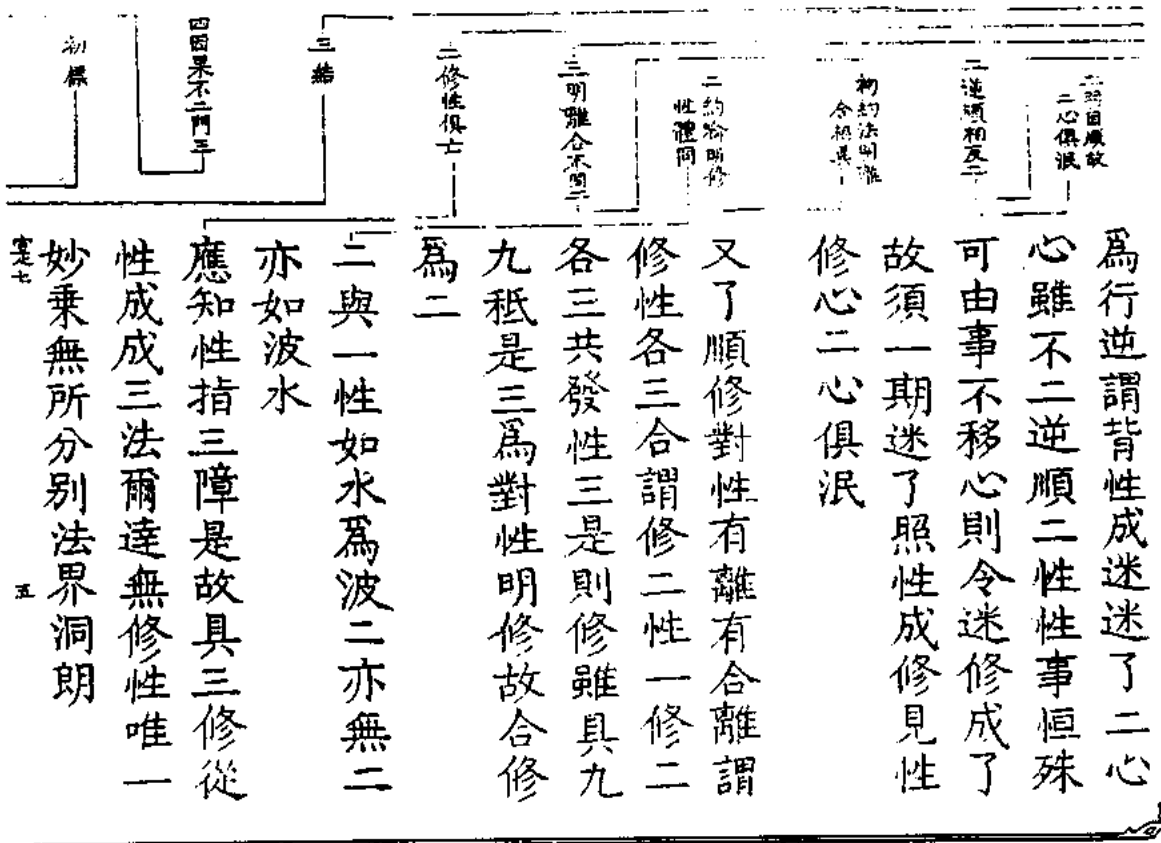 二明因順故
二心俱泯
二逆順相反二
初約法明離
合相異
二約喻明修
性體同
三明離合不同二
二修性俱亡
三結
四因果不二門三
初標
爲行逆謂背性成迷迷了二心
心雖不二逆順二性性事恒殊
可由事不移心則令迷修成了
故須一期迷了照性成修見性
修心二心俱泯
又了順修對性有離有合離謂
修性各三合謂修二性一修二
各三共發性三是則修雖具九
九秖是三爲對性明修故合修
爲二
二與一性如水爲波二亦無二
亦如波水
應知性指三障是故具三修從
性成成三法爾達無修性唯一
妙乗無所分别法界洞朗
五